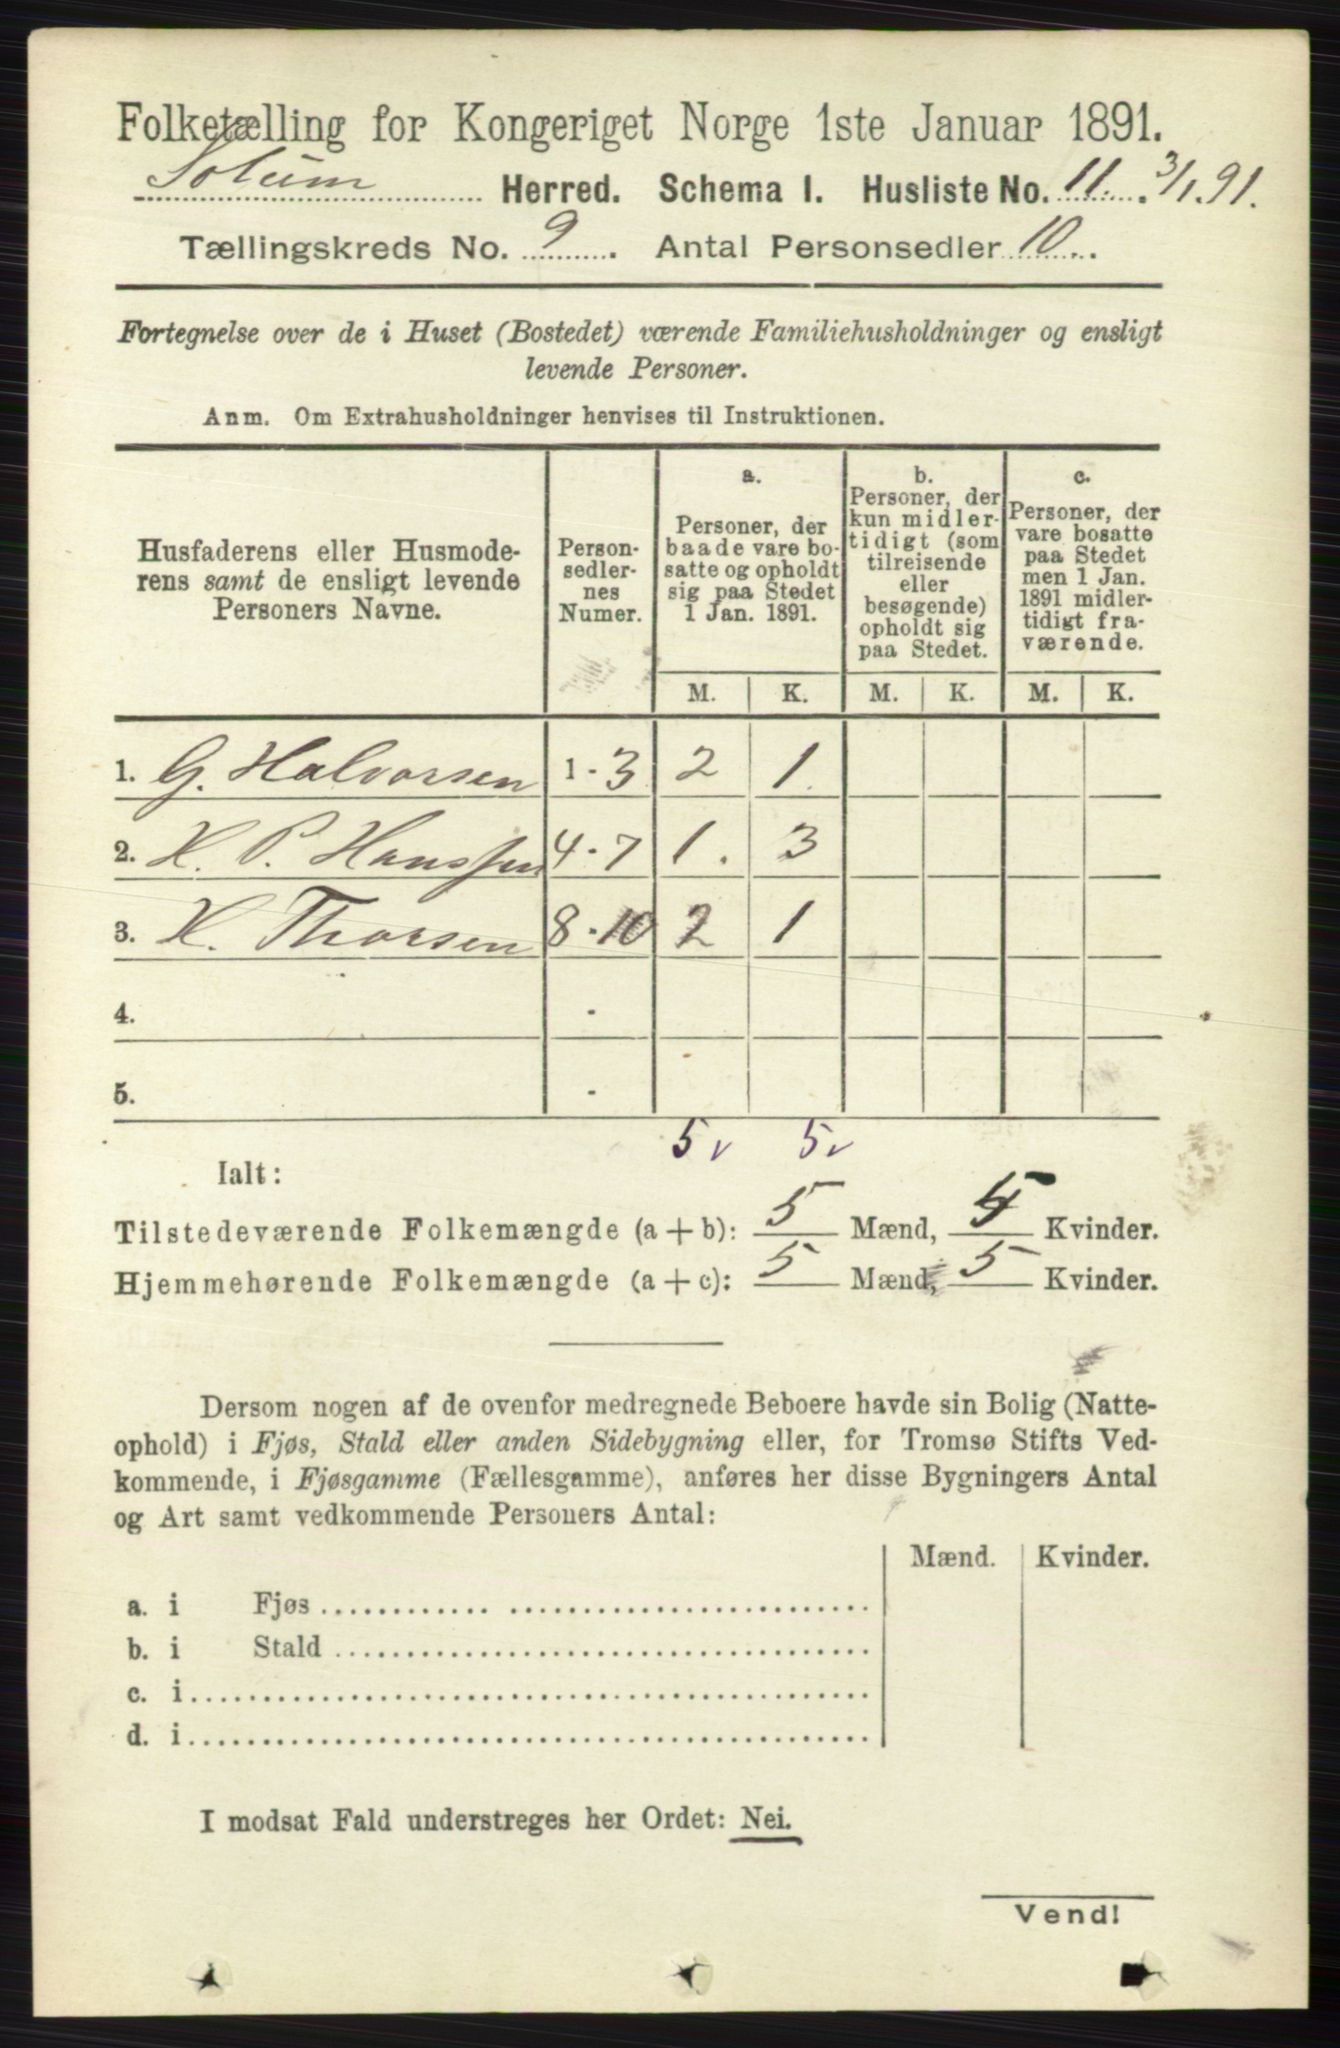 Folketælling for Kongeriget Norge 1ste Januar 1891.
Solum Herred. Schema I. Husliste No. 11. 3/1.91.
Tællingskreds No. 9. Antal Personsedler 10.
Fortegnelse over de i Huset (Bostedet) værende Familiehusholdninger og ensligt
levende Personer.
Anm. Om Extrahusholdninger henvises til Instruktionen.
Husfaderens eller Husmode-
rens samt de ensligt levende
Personers Navne.
Person-
sedler-
nes
Numer.
a.
Personer, der
baade vare bo-
satte og opholdt
sig paa Stedet
1 Jan. 1891.
b.
Personer, der
kun midler-
tidigt (som
tilreisende
eller
besøgende)
opholdt sig
paa Stedet.
c.
Personer, der
vare bosatte
paa Stedet
men 1 Jan.
1891 midler-
tidigt fra-
værende.
M. K. M. K. M. K.
1. G. Halvorsen 1-3 2 1
2. H. P. Hanssen 4-7 1. 3
3. H. Thorsen 8-10 2 1
4. -
5. -
5 v 5 v
Ialt:
Tilstedeværende Folkemængde (a + b): 5 Mænd, 5 Kvinder.
Hjemmehørende Folkemængde (a + c): 5 Mænd, 5 Kvinder.
Dersom nogen af de ovenfor medregnede Beboere havde sin Bolig (Natte-
ophold) i Fjøs, Stald eller anden Sidebygning eller, for Tromsø Stifts Ved-
kommende, i Fjøsgamme (Fællesgamme), anføres her disse Bygningers Antal
og Art samt vedkommende Personers Antal:
Mænd. Kvinder.
a. i Fjøs
b. i Stald
c. i
d. i
I modsat Fald understreges her Ordet: Nei.
Vend!